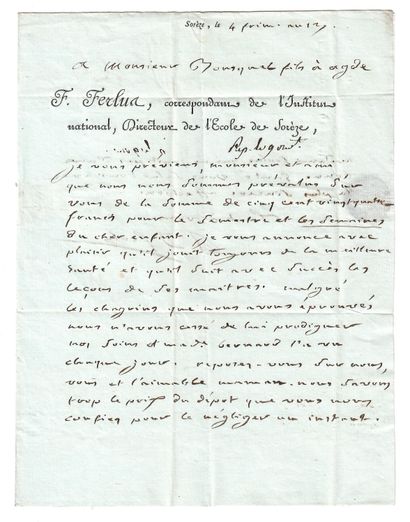 Sorèze, le 4 frim. an 12.
A Monsieur Bousquet fils à agde
F. Ferlus, correspondant de l'Institut
national, Directeur de l'Ecole de Sorèze,
je vous préviens, monsieur et ami
que nous nous sommes prévalus sur
vous de la somme de cinq cent vingt quatre
francs pour le semestre et les semaines
du cher enfant. je vous annonce avec
plaisir qu'il jouit toujours de la meilleure
santé et qu'il suit avec succès les
leçons de ses maitres. malgré
les chagrins que nous avons éprouvés
nous n'avons cessé de lui prodiguer
nos soins et made bernard l'a vu
chaque jour. reposez-vous sur nous,
vous et l'aimable maman. nous savons
trop le prix du dépot que vous nous
confiez pour le négliger un instant.